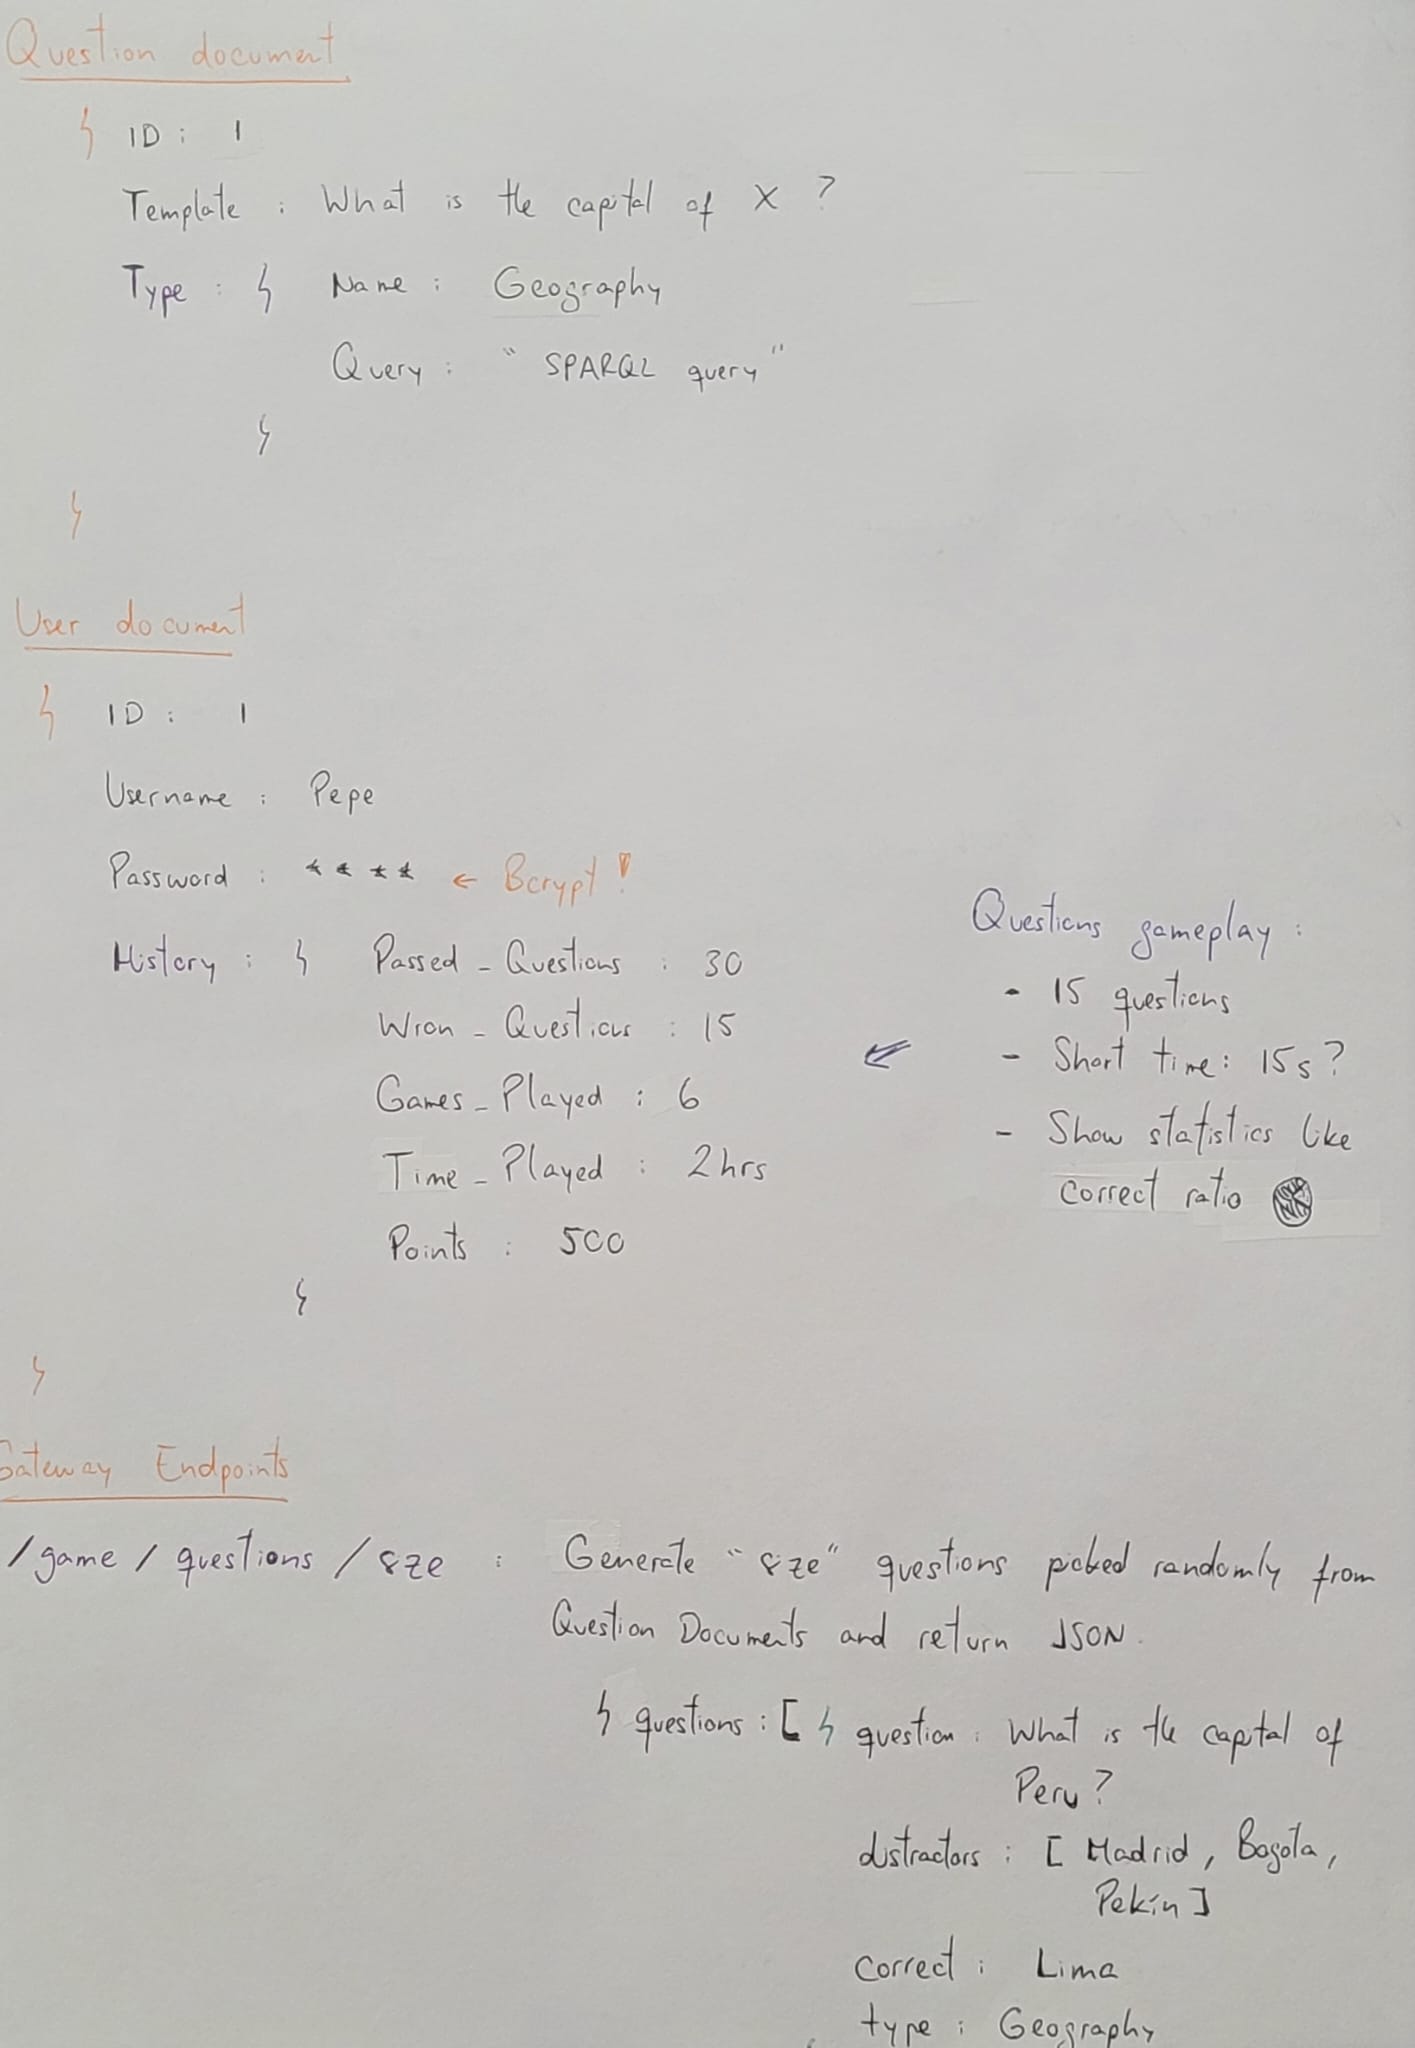 Question document
{ ID : 1
Template : What is the capital of X ?
Type : { Name : Geography
Query : " SPARQL query "
}
}
User document
{ ID : 1
Username : Pepe
Password : **** ← Bcrypt !
History : { Passed_Questions : 30
Wron_Questions : 15
Games_Played : 6
Time_Played : 2hrs
Points : 500
}
}
Questions gameplay :
- 15 questions
- Short time: 15s ?
- Show statistics like
correct ratio
Gateway Endpoints
/game/questions/size : Generate "size" questions picked randomly from
Question Documents and return JSON.
{ questions : [ { question : What is the capital of
Peru ?
distractors : [ Madrid, Bogota,
Pekín ]
correct : Lima
type : Geography